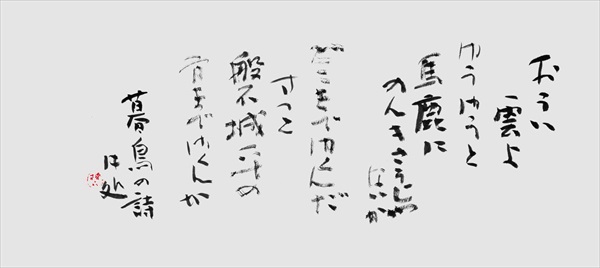 おうい
雲よ
ゆうゆうと
馬鹿に
のんきさうぢや
ないか
どこまでゆくんだ
ずつと
磐城平の
方までゆくんか
暮鳥の詩